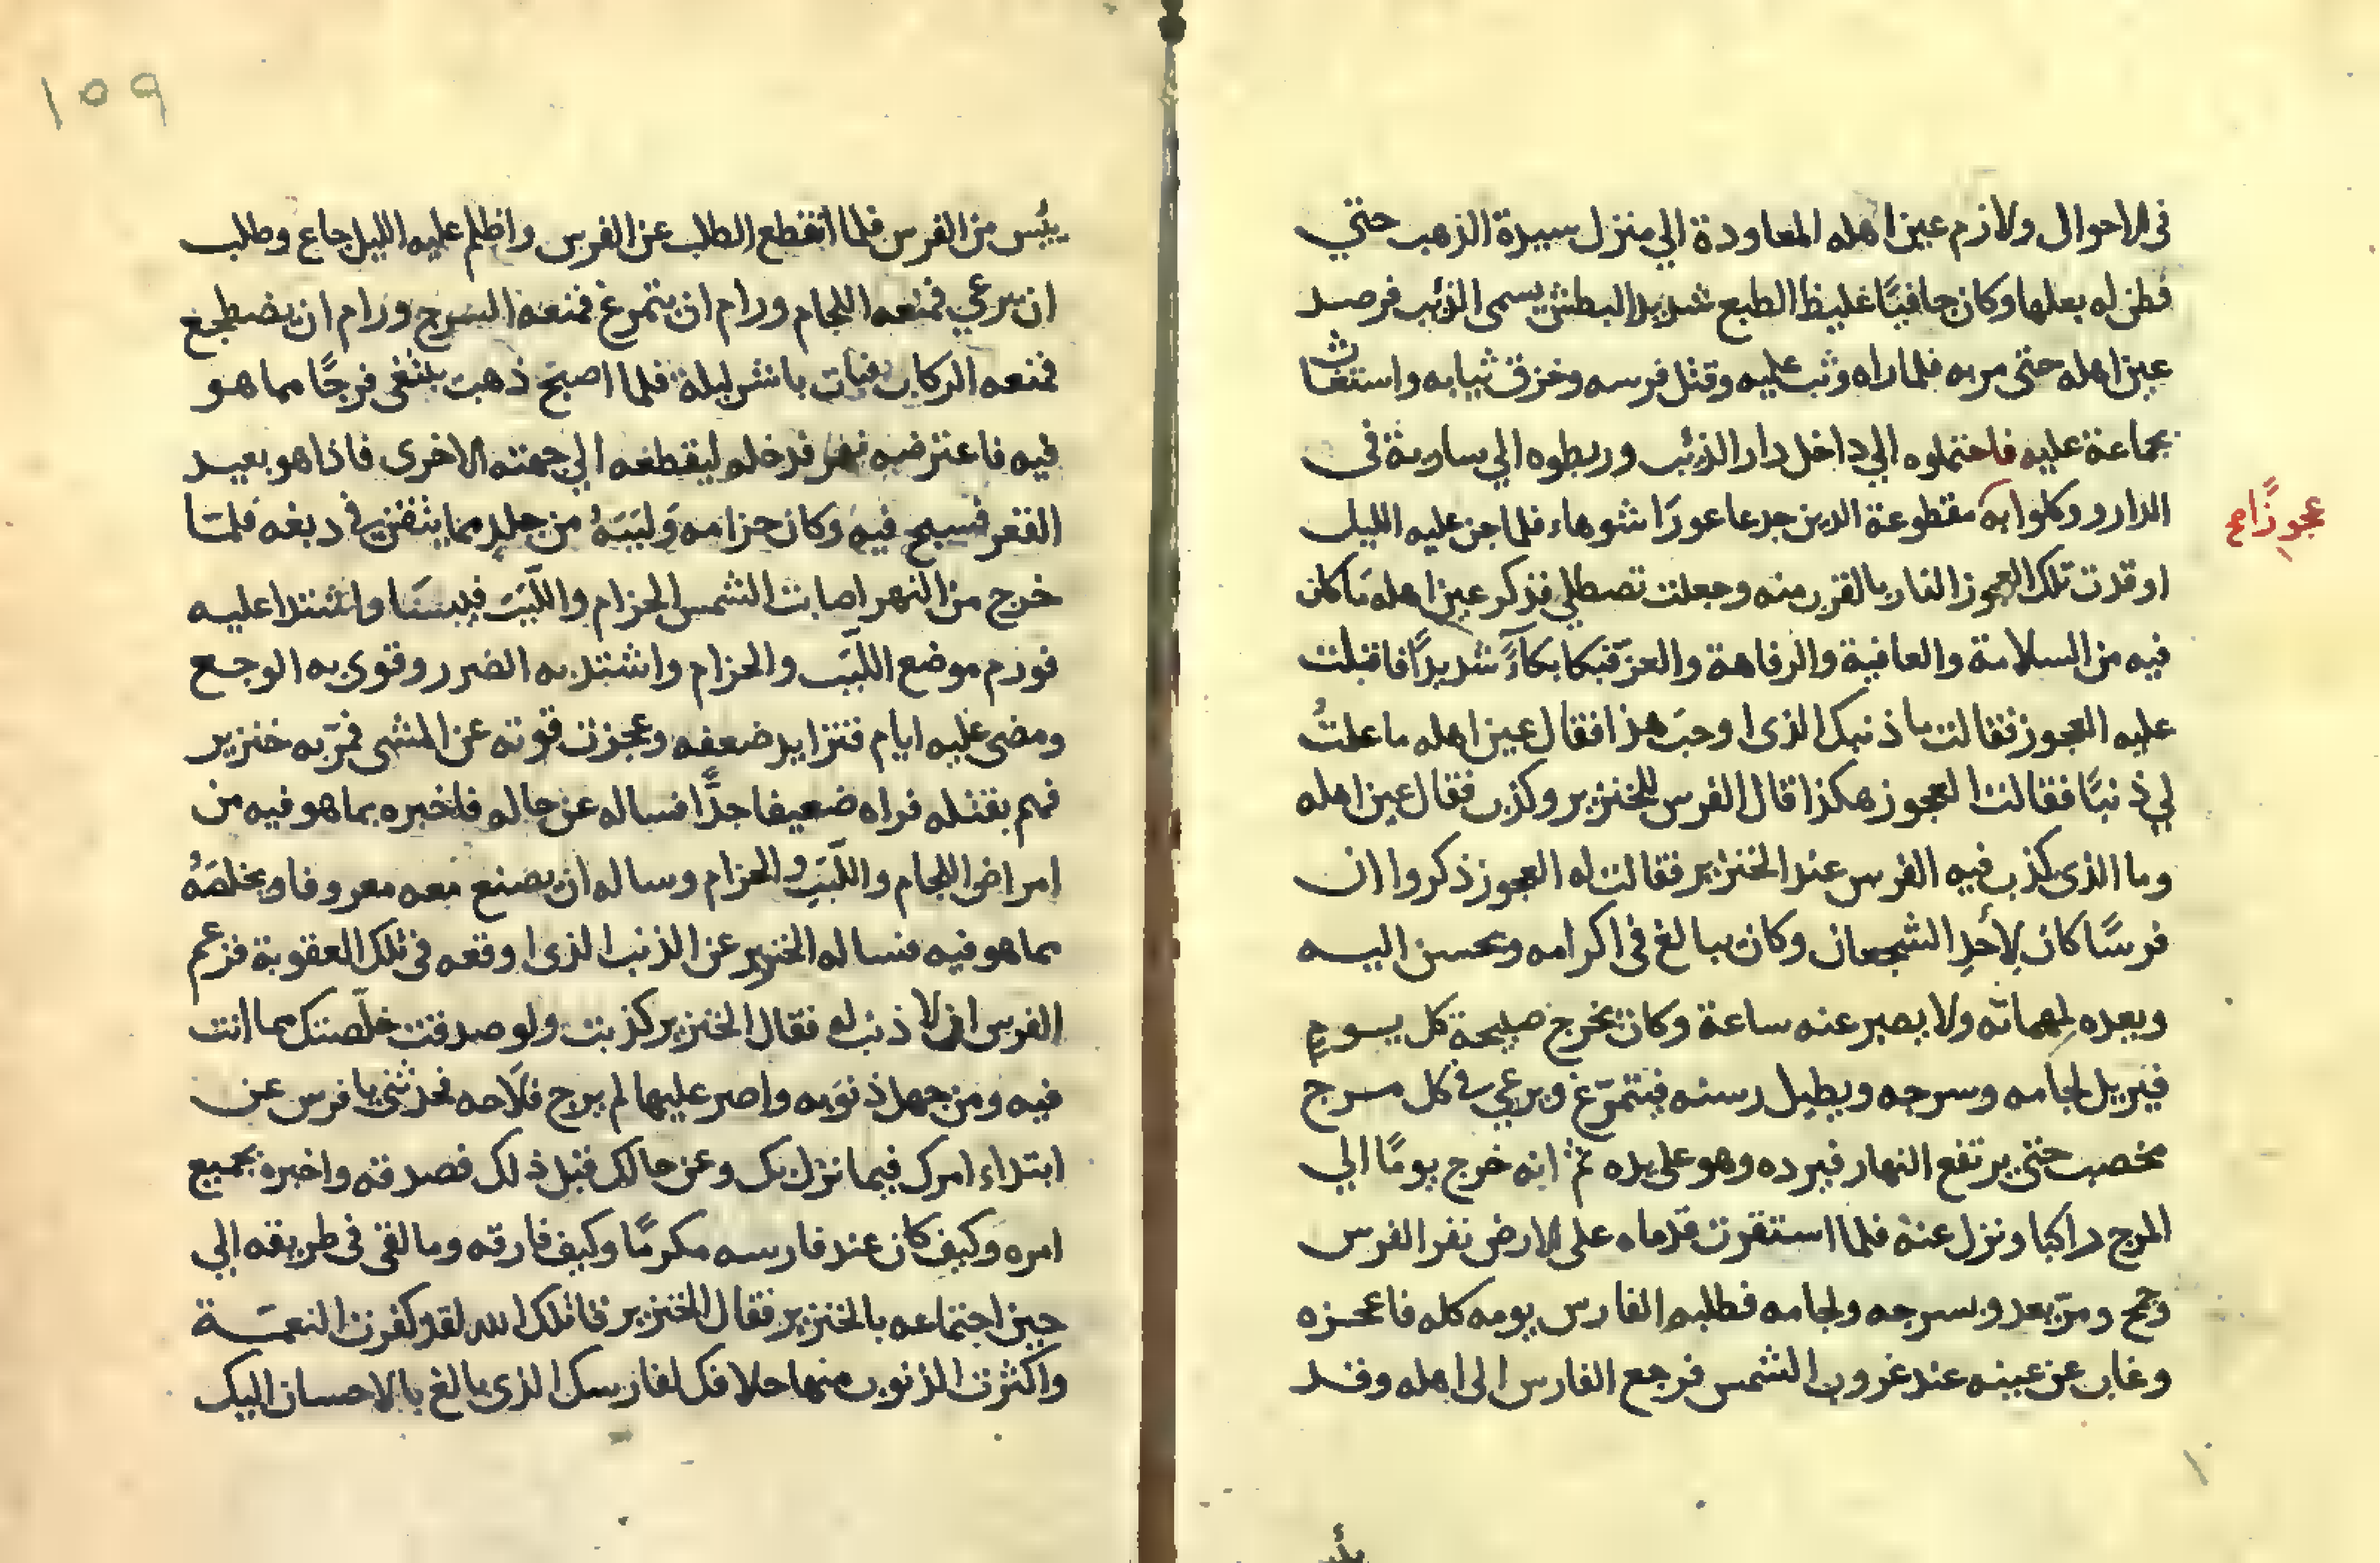 في الاحوال ولازم عين اهله المعاودة الي منزل سيدة الذهب حتي
فطن له بعلها وكان جافيًا غليظ الطبع شديد البطش يسمى الذئب فرصد
عين اهله حتى مر به فلما راه وثب عليه وقتل فرسه وخزق ثيابه واستغاث
بجماعة عليه فاحتملوه الي داخل دار الذئب وربطوه الي سارية في
الدار ووكلوا به مقطوعة اليدين جدعا عورا شوهاء فلما جن عليه الليل
عجوزًا صح
اوقدت تلك العجوز النار بالقرب منه وجعلت تصطلي فذكر عين اهله ما كان
فيه من السلامة والعافية والرفاهة والعز فبكا بكاءً شديدًا فاقبلت
عليه العجوز فقالت ما ذنبك الذى اوجب هذا فقال عين اهله ما علمتُ
لي ذنبًا فقالت العجوز هكذا قال الفرس للخنزير وكذب فقال عين اهله
وما الذى كذب فيه الفرس عند الخنزير فقالت له العجوز ذكروا ان
فرسًا كان لأحدِ الشجعان وكان يبالغ في اكرامه ويحسن اليه
ويعده لمهماته ولا يصبر عنه ساعة وكان يخرج صبيحة كل يومٍ
فيزيل لجامه وسرجه ويطيل رسنه فيتمرّغ ويرعي في كل مرج
مخصب حتى يرتفع النهار فيرده وهو على يده ثم انه خرج يومًا الي
المرج راكبا ونزل عنه فلما استقرت قدماه على الارض نفر الفرس
وجمح ومرّ يعدو بسرجه ولجامه فطلبه الفارس يومه كله فاعجزه
وغاب عن عينه عند غروب الشمس فرجع الفارس الى اهله وقد
يئس
١٥٩
يئس من الفرس فلما انقطع الطلب عن الفرس واظلم عليه الليل جاع وطلب
ان يرعي فمنعه اللجام ورام ان يتمرغ فمنعه السرج ورام ان يضطجع
فمنعه الركاب فبات باشر ليلة فلما اصبح ذهب يبتغي فرجًا مما هو
فيه فاعترضه نهر فدخله ليقطعه الي جهته الاخرى فاذا هو بعيد
القعر فسبح فيه وكان حزامه ولببه من جلد مما يتقن في دبغه فلما
خرج من النهر اصابت الشمس الحزام واللبب فيبسا واشتدا عليه
فورم موضع اللبب والحزام واشتد به الضرر وقوى به الوجع
ومضى عليه ايام فتزايد ضعفه وعجزت قوته عن المشى فمرّ به خنزير
فهم بقتله فراه ضعيفا جدًّا فساله عن حاله فاخبره بما هو فيه من
امراض اللجام واللبب والحزام وساله ان يصنع معه معروفا ويخلصه
مما هو فيه فساله الخنزير عن الذنب الذى اوقعه في تلك العقوبة فزعم
الفرس ان لا ذنب له فقال الخنزير كذبت ولو صدقت خلّصتك مما انت
فيه ومن جهل ذنوبه واصر عليها لم يرج فلاحه فحدثني يا فرس عن
ابتداء امرك فيما نزل بك وعن حالك قبل ذلك فصدقه واخبره بجميع
امره وكيف كان عند فارسه مكرمًا وكيف فارقه وما لقى في طريقه الي
حين اجتماعه بالخنزير فقال الخنزير قاتلك الله لقد كفرت النعمة
واكثرت الذنوب منها خلافك لفارسك الذى بالغ بالاحسان اليك